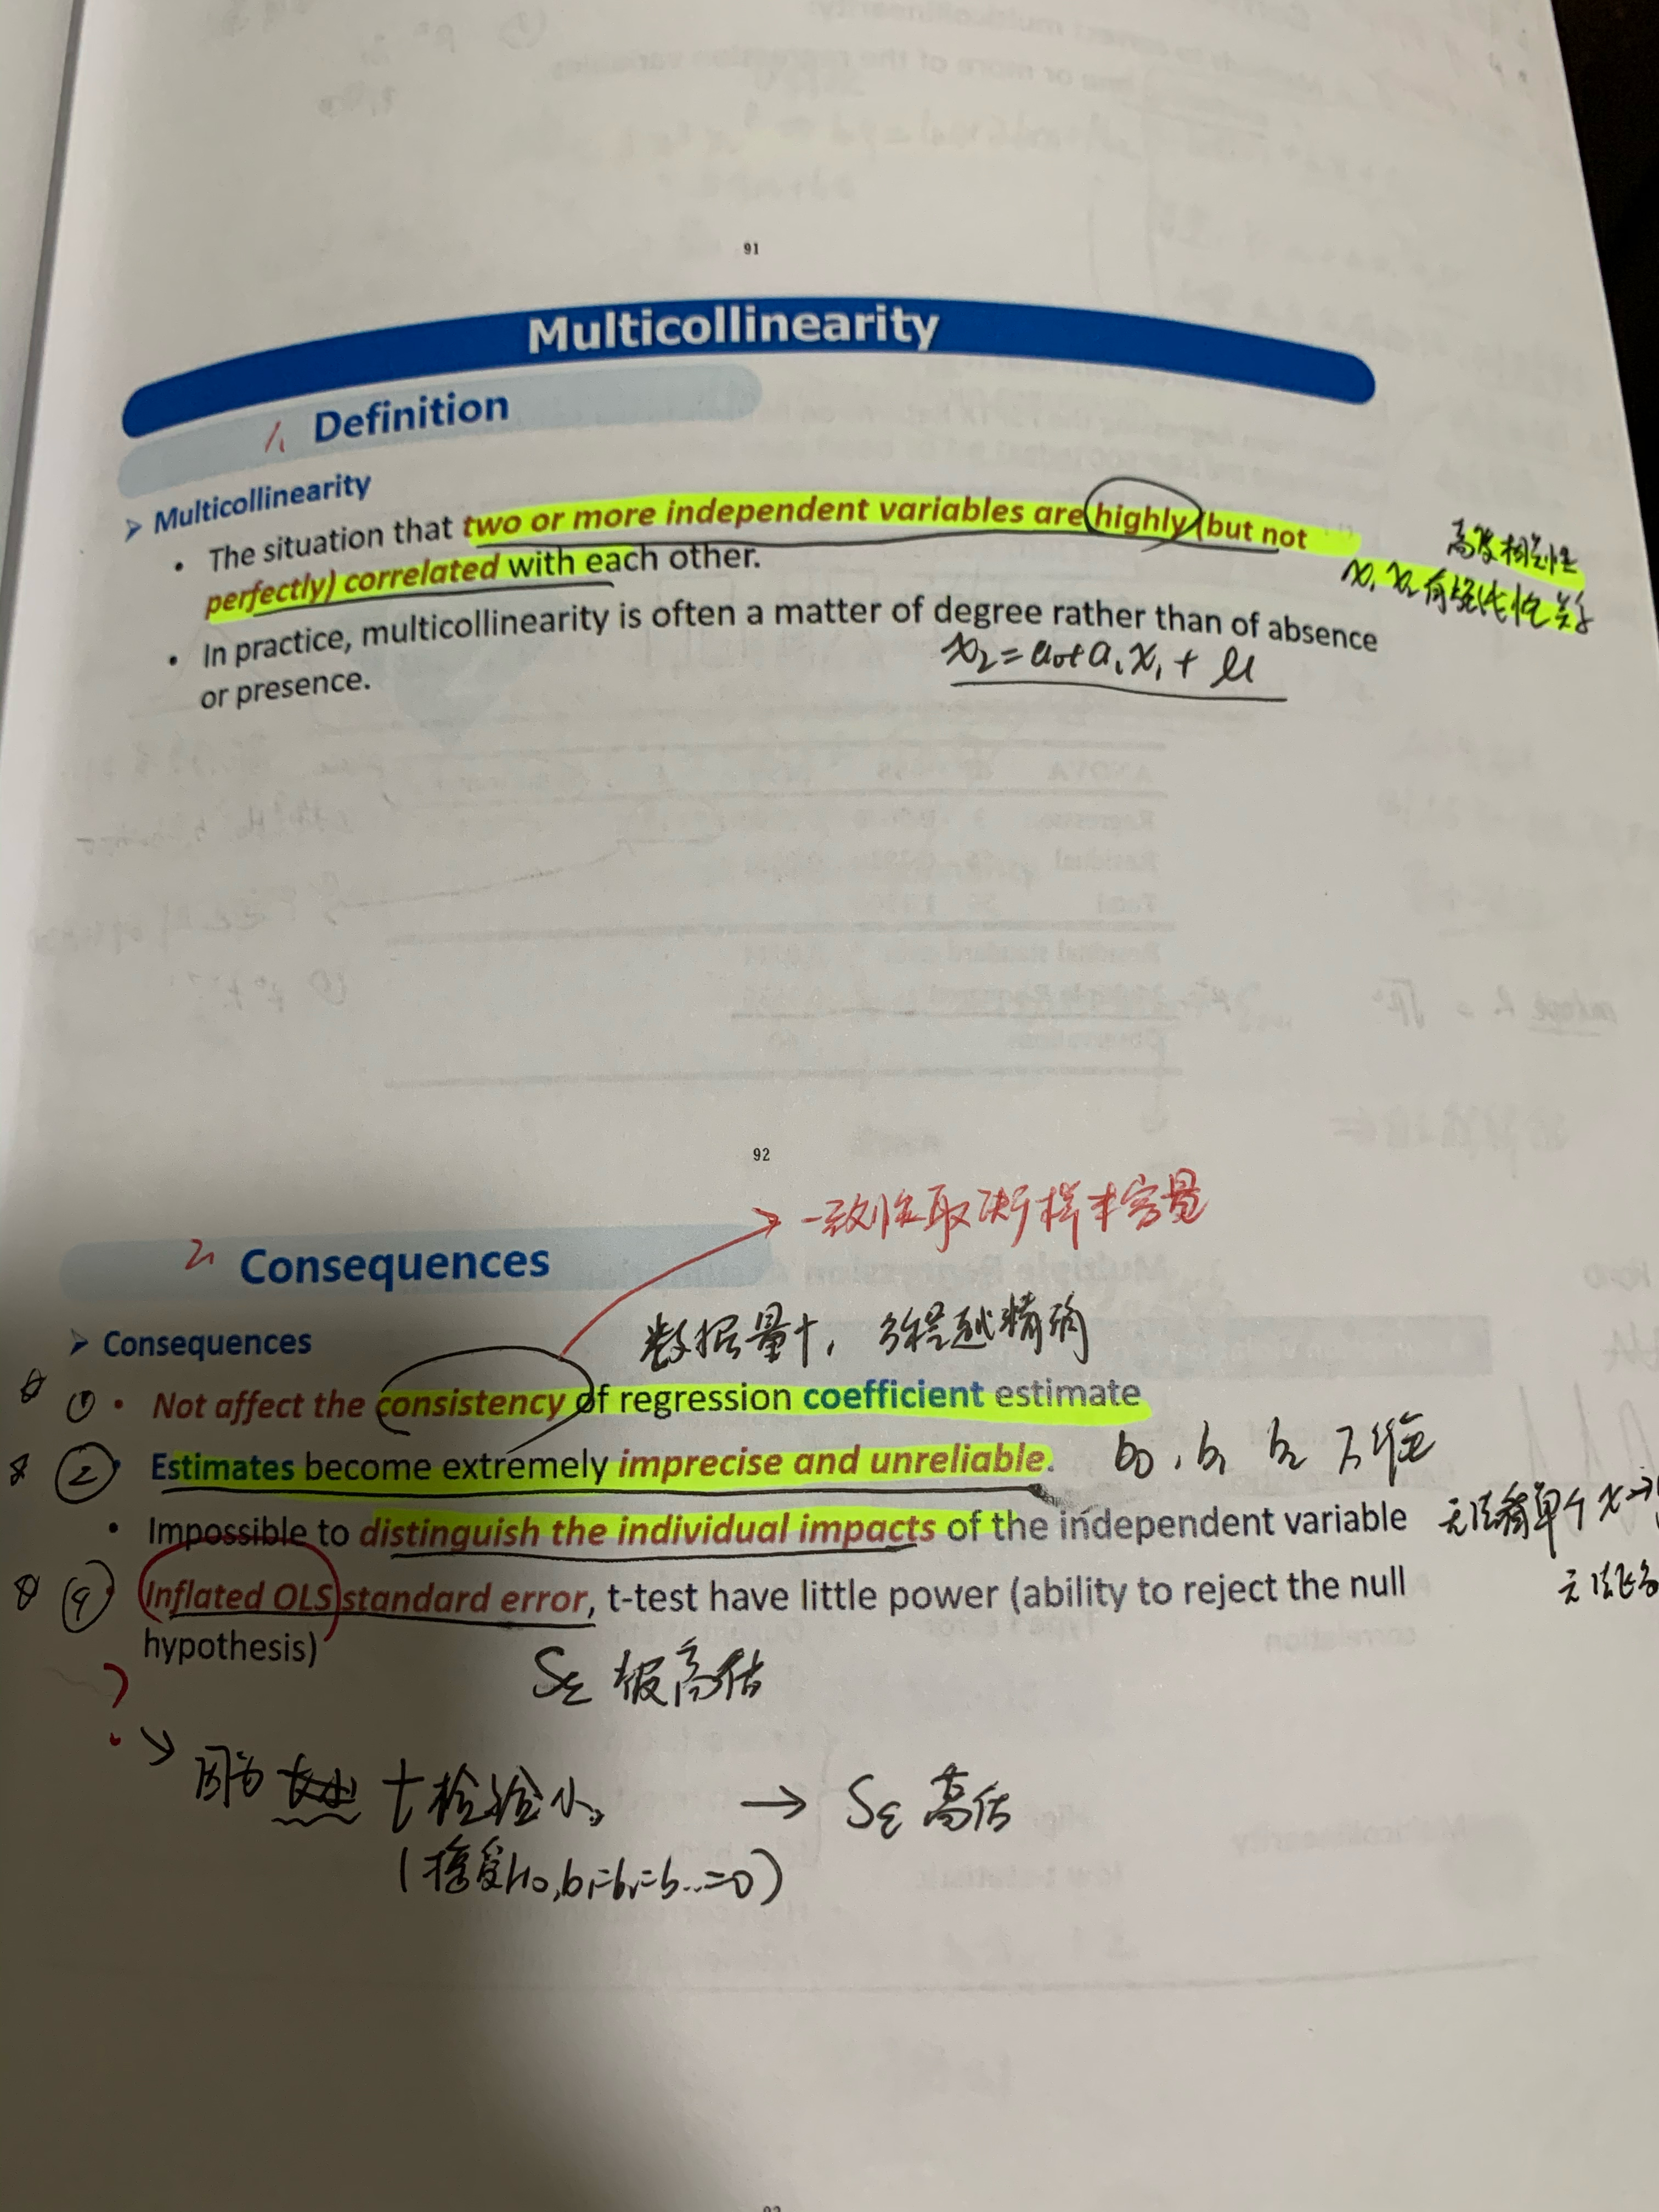 91
Multicollinearity
1. Definition
➢ Multicollinearity
• The situation that two or more independent variables are highly (but not
perfectly) correlated with each other.
高度相关性
x₁ x₂ 有强线性关系
• In practice, multicollinearity is often a matter of degree rather than of absence
or presence.
x₂ = a₀+a₁x₁ + μ
92
一致性取决于样本容量
2. Consequences
数据量↑,
越精确
➢ Consequences
① • Not affect the consistency of regression coefficient estimate
② • Estimates become extremely imprecise and unreliable.
b₀, b₁ b₂ 不准
• Impossible to distinguish the individual impacts of the independent variable
单个 x →
④ • Inflated OLS standard error, t-test have little power (ability to reject the null
hypothesis)
Sε 被高估
? → 因为 t检验小。 → Sε 高估
(接受H₀, b₁=b₂=b...=0)